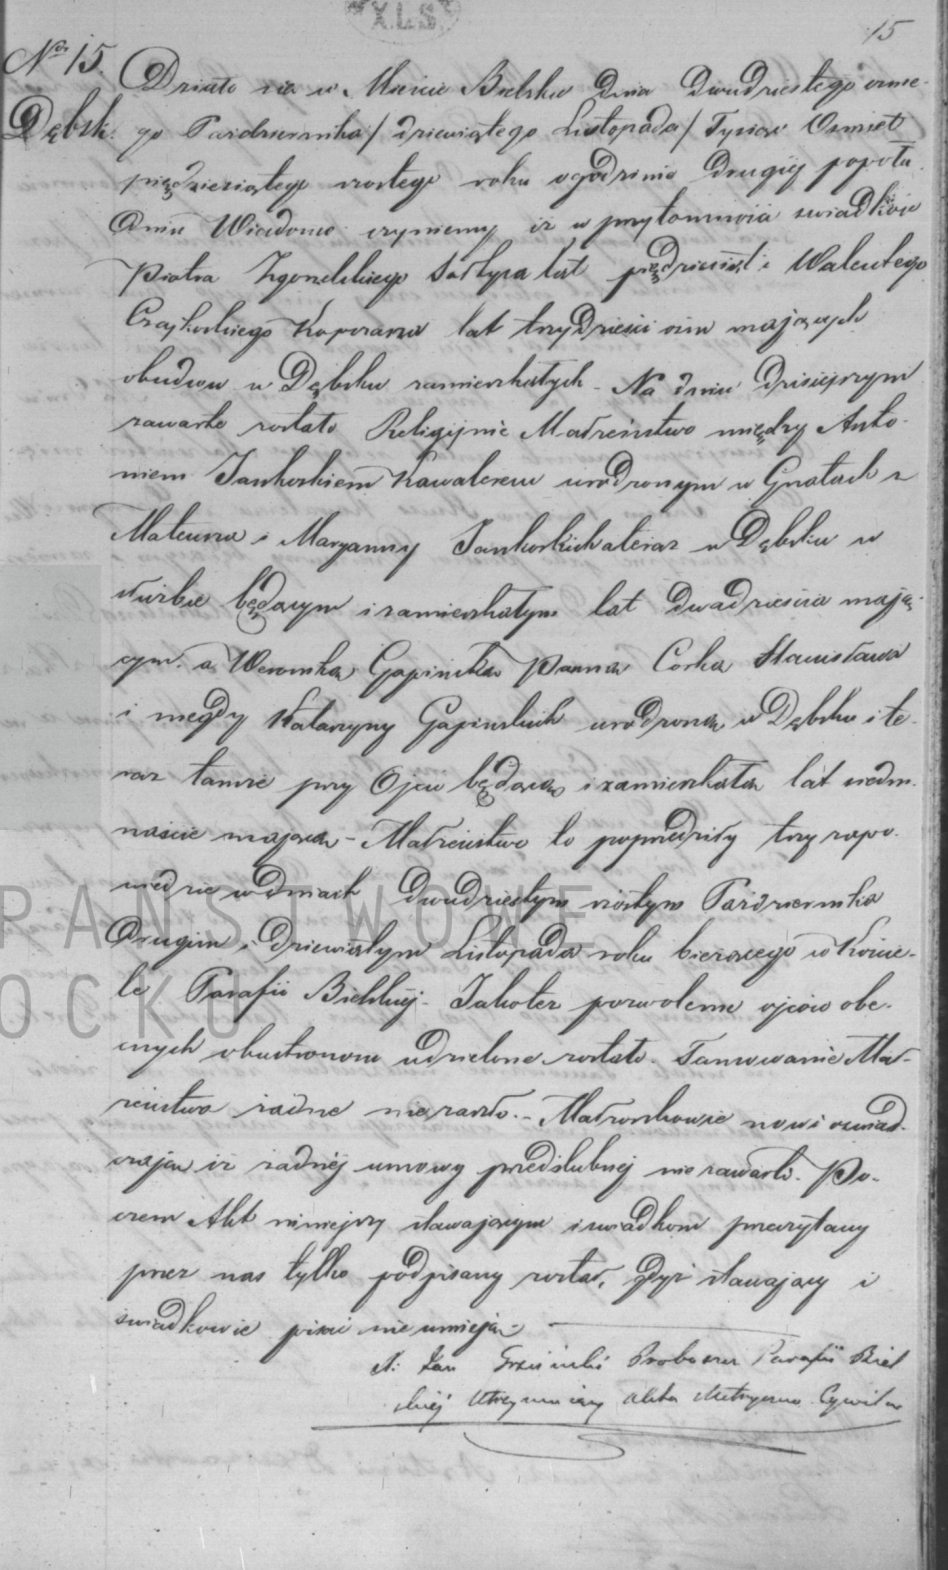 XLS
15
Nr 15.
Dębsk.
Działo się w Mieście Bielsku dnia Dwudziestego ósme-
go Października / dziewiątego Listopada / Tysiąc Osmset
pięćdziesiątego szóstego roku o godzinie drugiéj popołu
dniu Wiadomo czyniemy iż w przytomności świadków
Piotra Sołtysa lat pięćdziesiąt i Walentego
Czajkoskiego lat trzydzieści ośm mających
obudwu w Dębsku zamieszkałych - Na dniu dzisiejszym
zawarte zostało Religijnie Małżeństwo między Anto-
niem Jankoskiem Kawalerem urodzonym w Gnatach z
Mateusza i Maryanny Jankoskich a teraz w Dębsku w
służbie będącym i zamieszkałym lat dwadzieścia mają-
cym. a Weroniką Gapinską Panną Corką Stanisława
i niegdy Katarzyny Gapinskich urodzoną w Dębsku i te-
raz tamże przy Ojcu będącą i zamieszkałą lat siedm-
naście mającą - Małżeństwo to poprzedziły trzy zapo-
wiedzie w dniach Dwudziestym szóstym Października
Drugim i dziewiątym Listopada roku bieżącego w Koście-
le Parafii Bielskiéj - Jakoteż pozwolenie ojców obe-
cnych obustronom udzielone zostało. Tamowanie Mał-
żeństwa żadne nie zaszło. - Małżonkowie nowi oświad-
czają iż żadnéj umowy przedślubnéj nie zawarli. Po-
czem Akt niniejszy stawającym i świadkom przeczytany
przez nas tylko podpisany został, gdyż stawający i
świadkowie pisać nie umieją -
X. Jan Proboszcz Parafii Biel
skiéj Utrzymujący Akta Cywilne
PANSTWOWE
OCKU